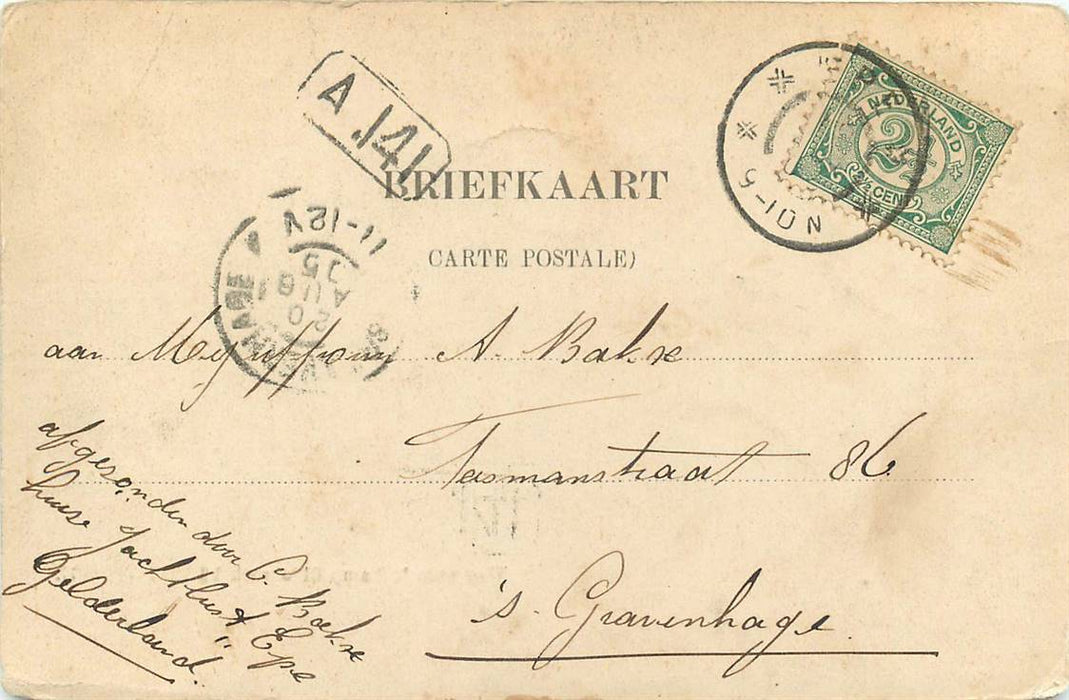 A.141
BRIEFKAART
CARTE POSTALE)
NEDERLAND
2½
2½ CENT
5-10N
11-12V
aan Mejuffrouw A. Bakse
Tasmanstraat 86
's Gravenhage.
afgezonden door C. Bakse
huize Jachtlust Epe
Gelderland.